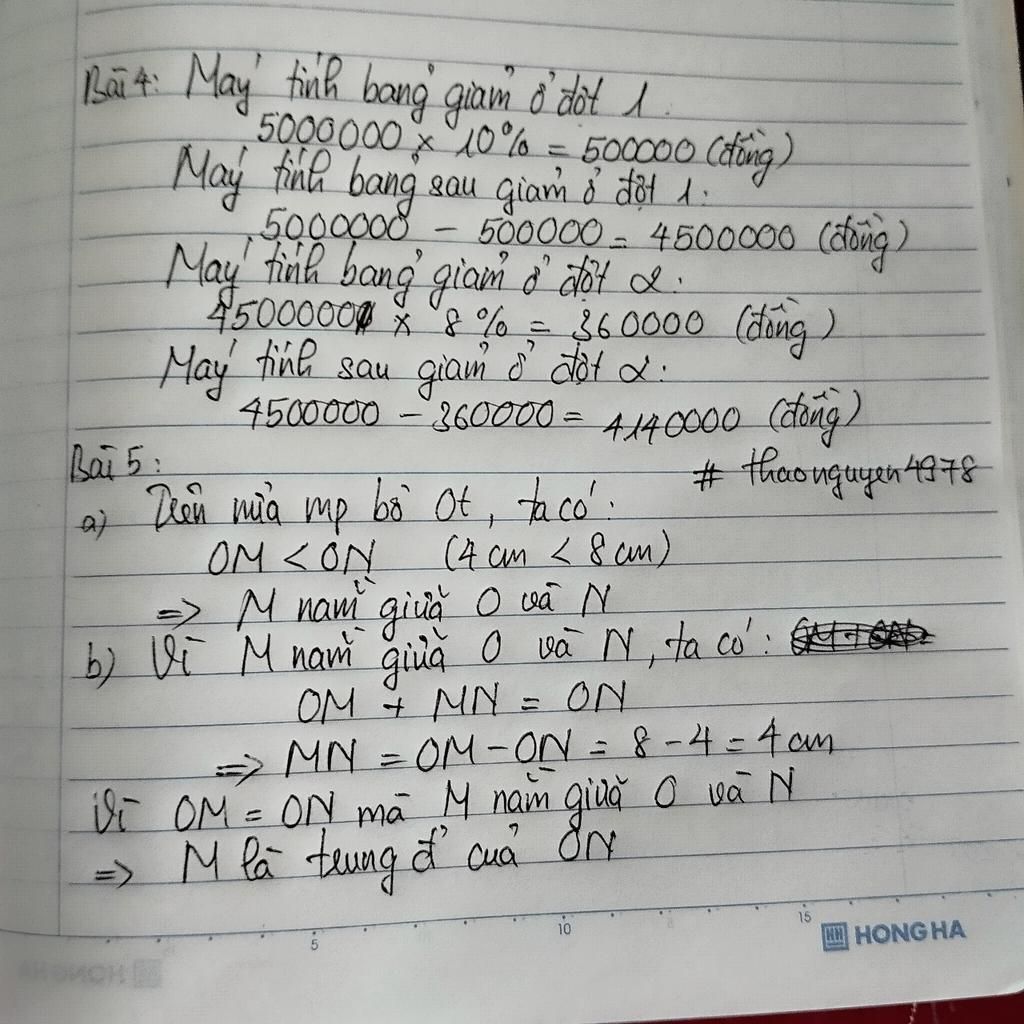 Bài 4: Máy tính bảng giảm ở đợt 1.
5000000 × 10% = 500000 (đồng)
Máy tính bảng sau giảm ở đợt 1:
5000000 - 500000 = 4500000 (đồng)
Máy tính bảng giảm ở đợt 2:
4500000 × 8% = 360000 (đồng)
Máy tính sau giảm ở đợt 2:
4500000 - 360000 = 4140000 (đồng)
Bài 5:
# thaonguyen4978
a) Trên nửa mp bờ Ot, ta có:
OM < ON (4 cm < 8 cm)
=> M nằm giữa O và N
b) Vì M nằm giữa O và N, ta có:
OM + MN = ON
=> MN = OM - ON = 8 - 4 = 4 cm
Vì OM = ON mà M nằm giữa O và N
=> M là trung đ' của ON
5 10 15
HONG HA